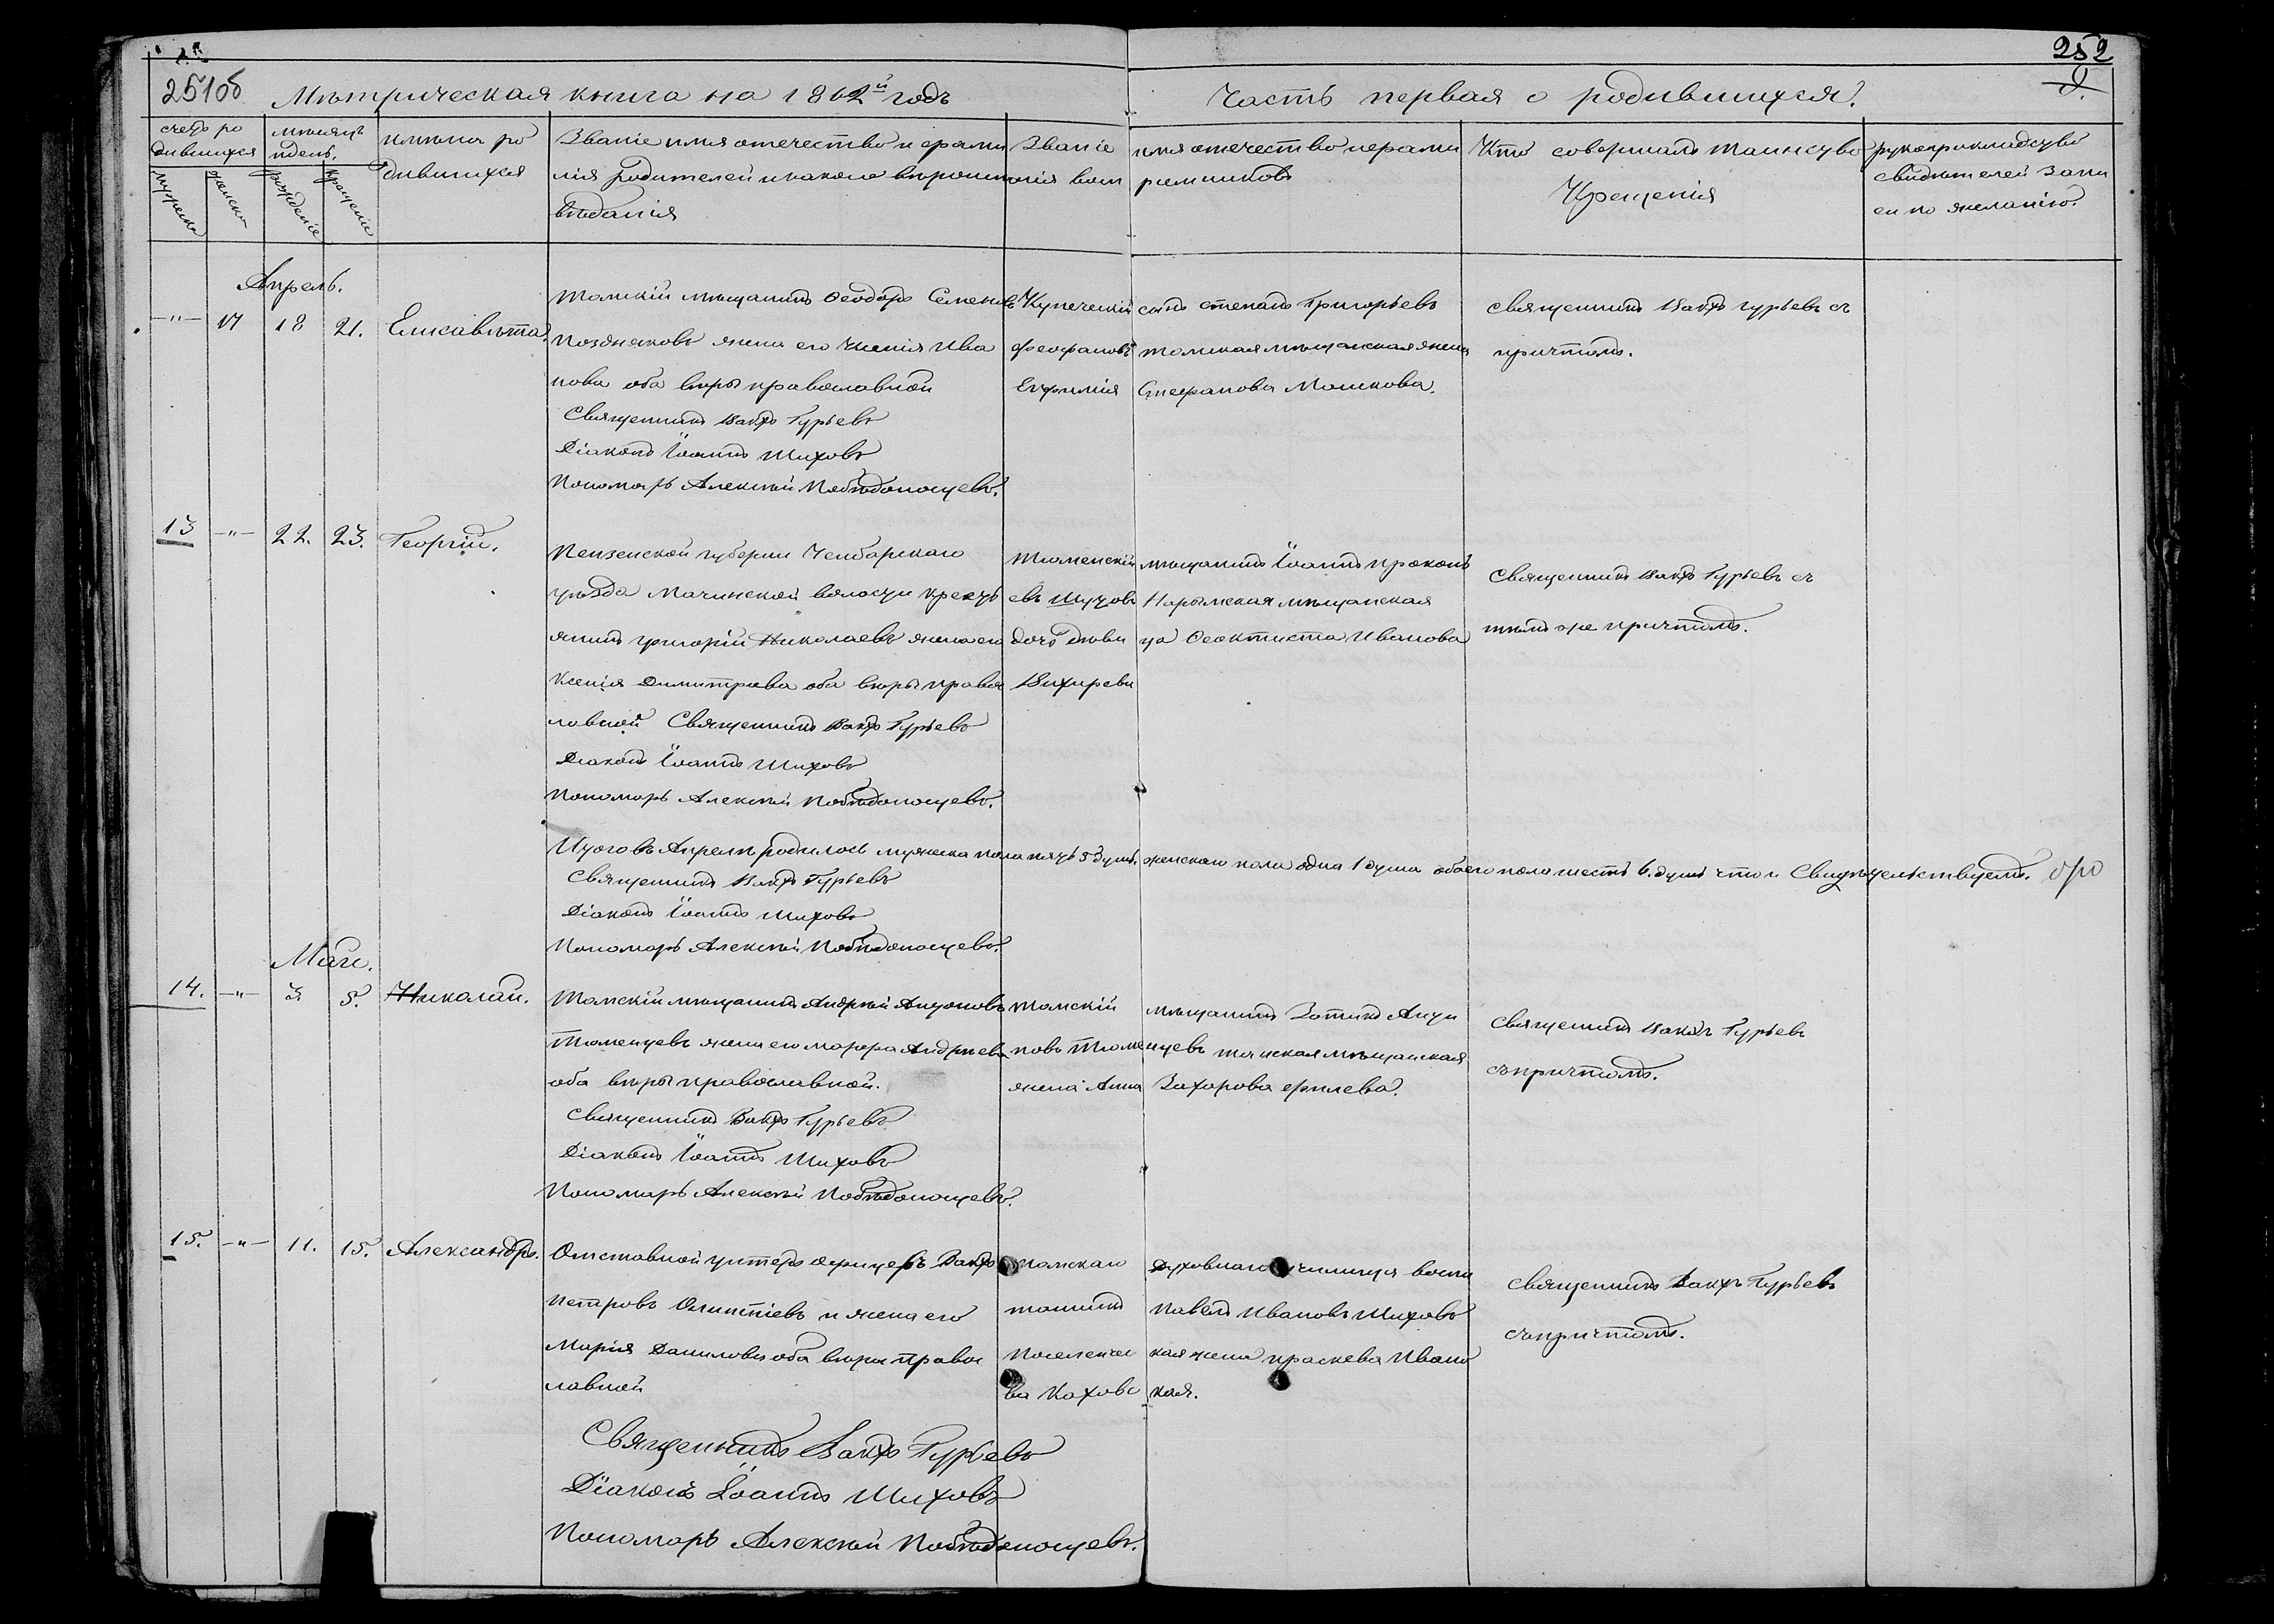 251об
252
Метрическая книга на 1862й годъ
Часть первая о родившихся.
счетъ ро
дившихся
мужеска
женска
месяцъ
и день.
рожденіе
крещеніе
имена ро
дившихся
Званіе имя отечество и фами
лія родителей и какого вероиспо
веданія
Званіе имя отечество и фами
лія восп риемниковъ
Кто совершалъ таинство
Крещенія
рукоприкладство
свидетелей запи
си по желанію.
Апрель.
—"— 17 18 21. Елисавета.
Томскій мещанинъ Ѳеодоръ Семеновъ
Поздняковъ жена его Ксенія Ива
нова оба веры православной
Священникъ Вакхъ Гурьевъ
Діаконъ Іоаннъ Шиховъ
Пономарь Алексей Победоносцевъ.
Купеческій сынъ Степанъ Григорьевъ
Феофановъ томская мещанская жена
Евфимія Стефанова Машкова.
Священникъ Вакхъ Гурьевъ съ
причтомъ.
13 —"— 22. 23. Георгій.
Пензенской губерніи Чембарскаго
уезда Мачинской волости кресть
янинъ Григорій Николаевъ жена его
Ксенія Димитрова оба веры правос
лавной Священникъ Вакхъ Гурьевъ
Діаконъ Іоаннъ Шиховъ
Пономарь Алексей Победоносцевъ.
Тюменскій мещанинъ Іоаннъ Прокопь
евъ Шутовъ Нарымская мещанская
дочь девица Ѳеоктиста Иванова
Вихирева
Священникъ Вакхъ Гурьевъ съ
темъ же причтомъ.
Итого въ Апреле родилось мужеска пола пять 5 душъ, женскаго пола одна 1 душа обоего пола шесть 6. душъ что и Свидетельствуемъ.
Священникъ Вакхъ Гурьевъ
Діаконъ Іоаннъ Шиховъ
Пономарь Алексей Победоносцевъ.
Маіи.
14. —"— 3 5. Николай.
Томскій мещанинъ Андрей Антоновъ
Тюменцевъ жена его Марфа Андреева
оба веры православной.
Священникъ Вакхъ Гурьевъ
Діаконъ Іоаннъ Шиховъ
Пономарь Алексей Победоносцевъ.
Томскій мещанинъ Зотикъ Анти
повъ Тюменцевъ томская мещанская
жена Анна Захарова
Священникъ Вакхъ Гурьевъ
съ причтомъ.
15. —"— 11. 15. Александръ.
Отставной унтеръ офицеръ Вакхъ
Петровъ и жена его
Марія Данилова оба веры правос
лавной
Священникъ Вакхъ Гурьевъ
Діаконъ Іоаннъ Шиховъ
Пономарь Алексей Победоносцевъ.
Томскаго Духовнаго училища воспи
танникъ Павелъ Ивановъ Шиховъ
Поселенчес кая жена Праскева Ивано
ва Каховс кая.
Священникъ Вакхъ Гурьевъ
съ причтомъ.